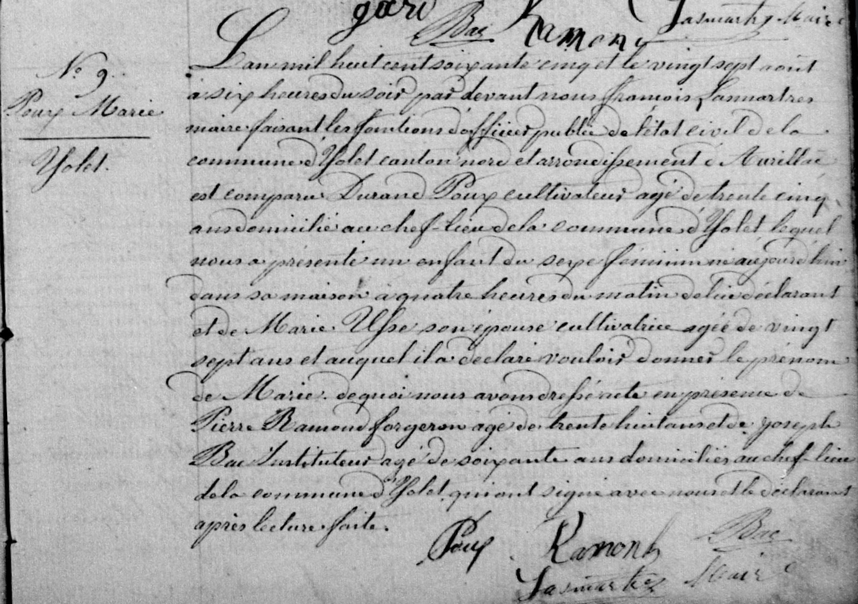 Bac Ramond Lasmartres Maire
N° 9.
Poux Marie
Yolet.
L'an mil huit cent soixante cinq et le vingt sept août
à six heures du soir par devant nous françois Lasmartres
maire faisant les fonctions d'officier public de l'état civil de la
commune d'Yolet canton nord et arrondissement d'Aurillac
est comparu Durand Poux cultivateur agé de trente cinq
ans domicilié au chef-lieu de la commune d'Yolet lequel
nous a présenté un enfant du sexe féminin né aujourd'hui
dans sa maison à quatre heures du matin de lui déclarant
et de Marie Usse son épouse cultivatrice agée de vingt
sept ans et auquel il a déclaré vouloir donner le prénom
de Marie. de quoi nous avons dressé acte en présence de
Pierre Ramond forgeron agé de trente huit ans et de Joseph
Bac Instituteur agé de soixante ans domiciliés au chef-lieu
de la commune d'Yolet qui ont signé avec nous et le déclarant
après lecture faite.
Poux Ramond Bac
Lasmartres Maire